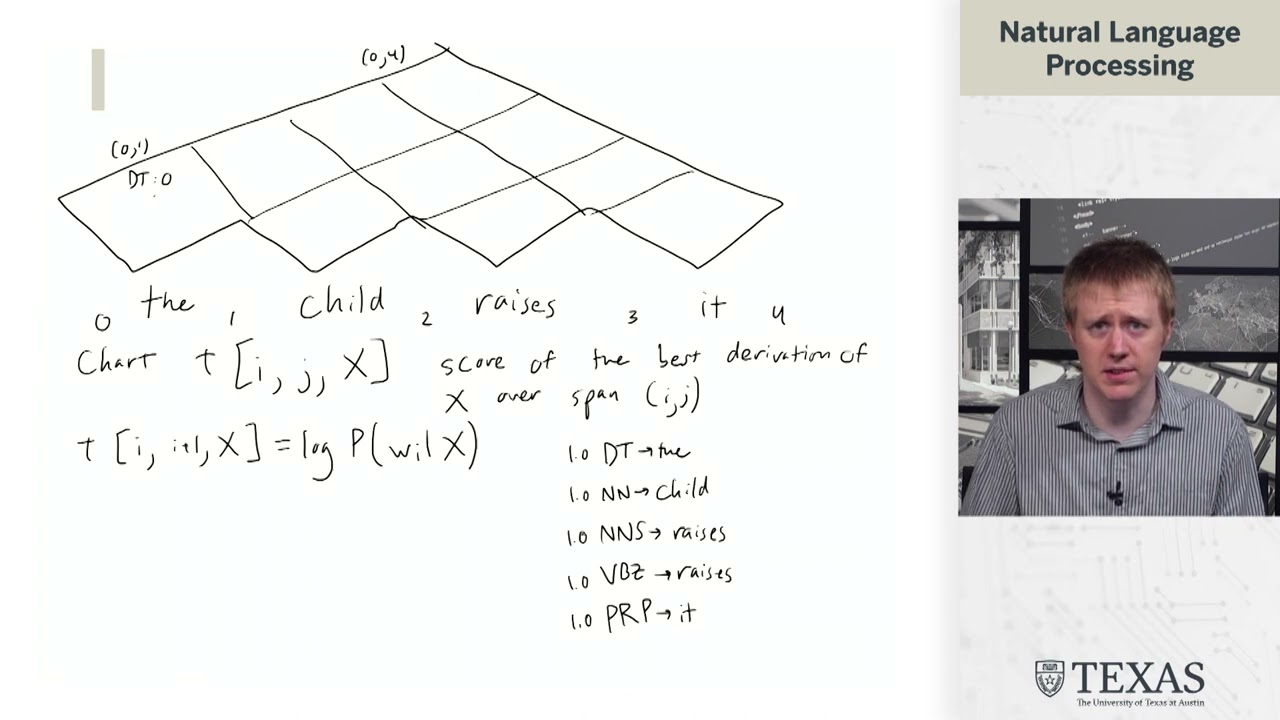 Natural Language
Processing
(0,4)
(0,1)
DT:0
0 the 1 child 2 raises 3 it 4
Chart t [i, j, X] score of the best derivation of
X over span (i,j)
t [i, i+1, X] = log P(wi|X)
1.0 DT→the
1.0 NN→child
1.0 NNS→raises
1.0 VBZ→raises
1.0 PRP→it
TEXAS
The University of Texas at Austin